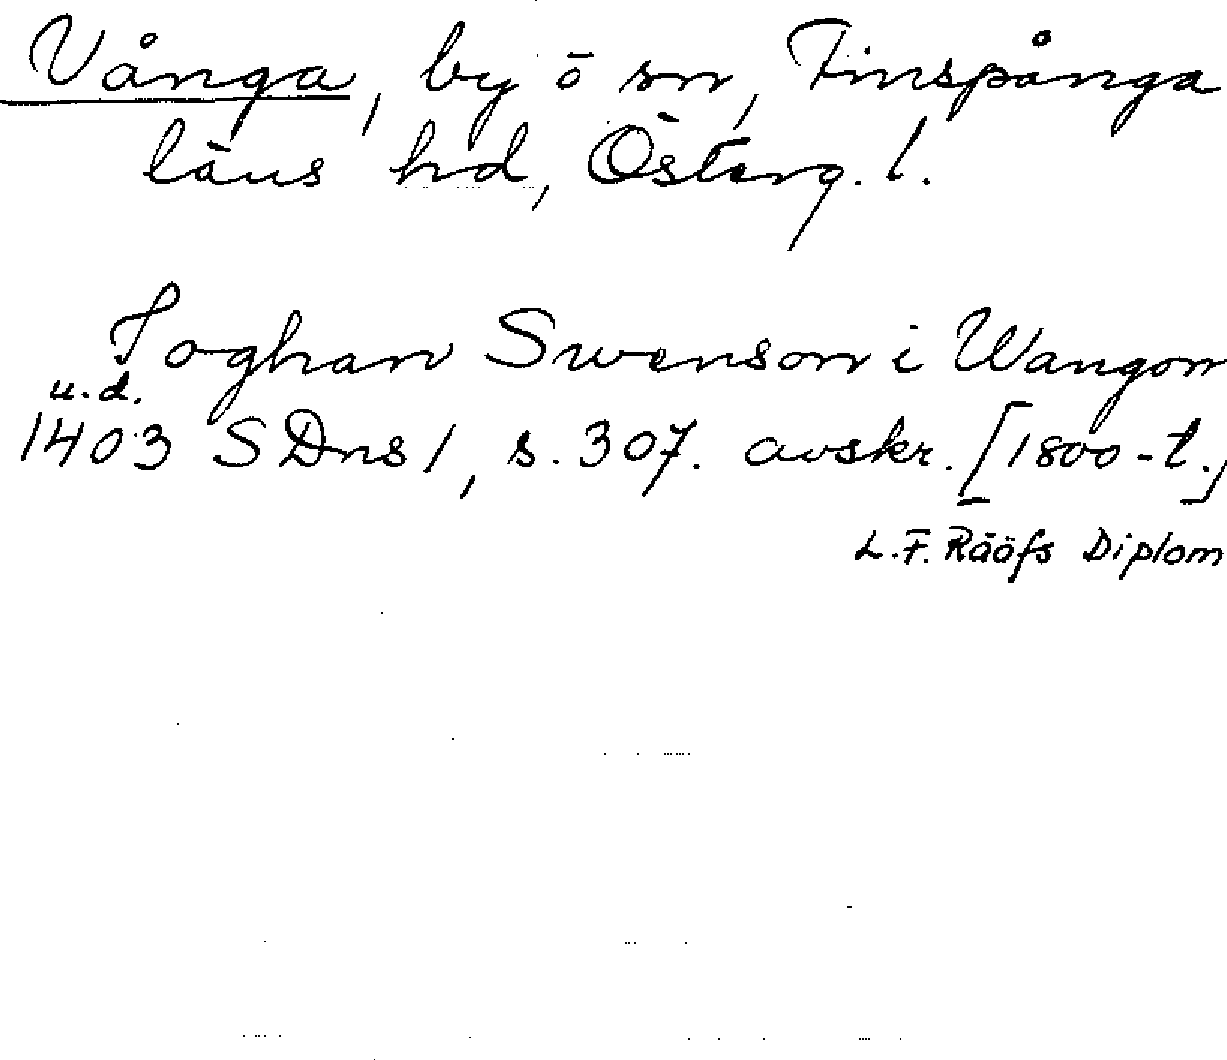 Vånga, by ō sn, Finspånga
läns hd, Österg. l.
Joghan Swenson i Wangom
u.d.
1403 SDns 1, s. 307. avskr. [1800-t.]
L.F. Rääfs Diplom